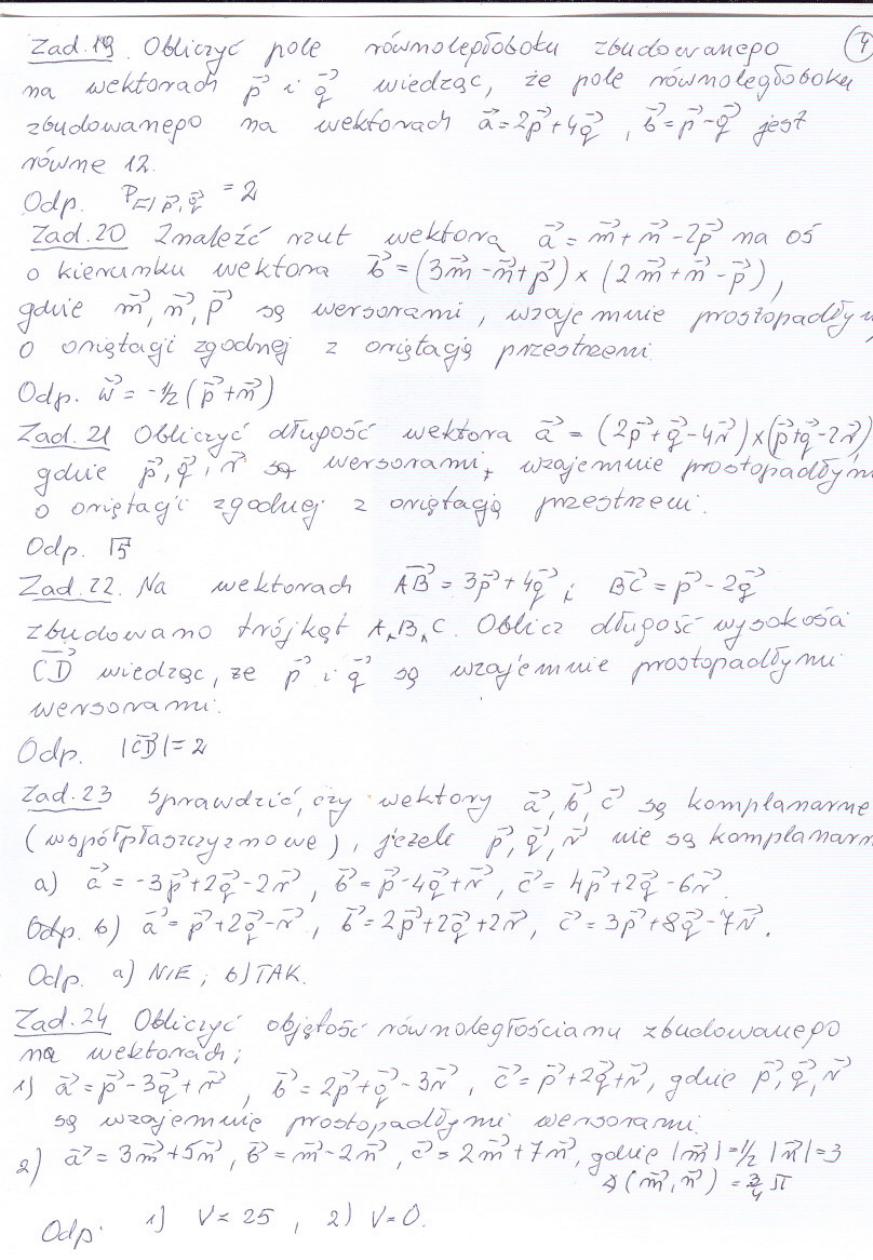 ④
Zad.19. Obliczyć pole równoległoboku zbudowanego
na wektorach p⃗ i q⃗ wiedząc, że pole równoległoboku
zbudowanego na wektorach a⃗=2p⃗+4q⃗, b⃗=p⃗-q⃗ jest
równe 12.
Odp. P▱ p⃗,q⃗ = 2
Zad.20 Znaleźć rzut wektora a⃗ = m⃗+n⃗-2p⃗ na oś
o kierunku wektora b⃗=(3m⃗-n⃗+p⃗)×(2m⃗+n⃗-p⃗),
gdzie m⃗,n⃗,p⃗ są wersorami, wzajemnie prostopadły
o oriętacji zgodnej z oriętacją przestrzeni.
Odp. w⃗ = -1/2(p⃗+n⃗)
Zad.21 Obliczyć długość wektora a⃗ = (2p⃗+q⃗-4r⃗)×(p⃗+q⃗-2r⃗)
gdzie p⃗,q⃗,r⃗ są wersorami, wzajemnie prostopadłym
o oriętacji zgodnej z oriętacją przestrzeni.
Odp. √5
Zad.22. Na wektorach AB⃗=3p⃗+4q⃗ i BC⃗=p⃗-2q⃗
zbudowano trójkąt A,B,C. Oblicz długość wysokości
CD⃗ wiedząc, ze p⃗ i q⃗ są wzajemnie prostopadłymi
wersorami.
Odp. |CD⃗|=2
Zad.23 Sprawdzić, czy wektory a⃗,b⃗,c⃗ są komplanarne
(współpłaszczyznowe), jeżeli p⃗,q⃗,r⃗ nie są komplanarn
a) a⃗=-3p⃗+2q⃗-2r⃗, b⃗=p⃗-4q⃗+r⃗, c⃗=4p⃗+2q⃗-6r⃗.
Odp. b) a⃗=p⃗+2q⃗-r⃗, b⃗=2p⃗+2q⃗+2r⃗, c⃗=3p⃗+8q⃗-7r⃗.
Odp. a) NIE; b) TAK.
Zad.24 Obliczyć objętość równoległościanu zbudowanego
na wektorach;
1) a⃗=p⃗-3q⃗+r⃗, b⃗=2p⃗+q⃗-3r⃗, c⃗=p⃗+2q⃗+r⃗, gdzie p⃗,q⃗,r⃗
są wzajemnie prostopadłymi wersorami.
2) a⃗=3m⃗+5n⃗, b⃗=m⃗-2n⃗, c⃗=2m⃗+7n⃗, gdzie |m⃗|=1/2 |n⃗|=3
∢(m⃗,n⃗)=3/4 π
Odp. 1) V=25, 2) V=0.